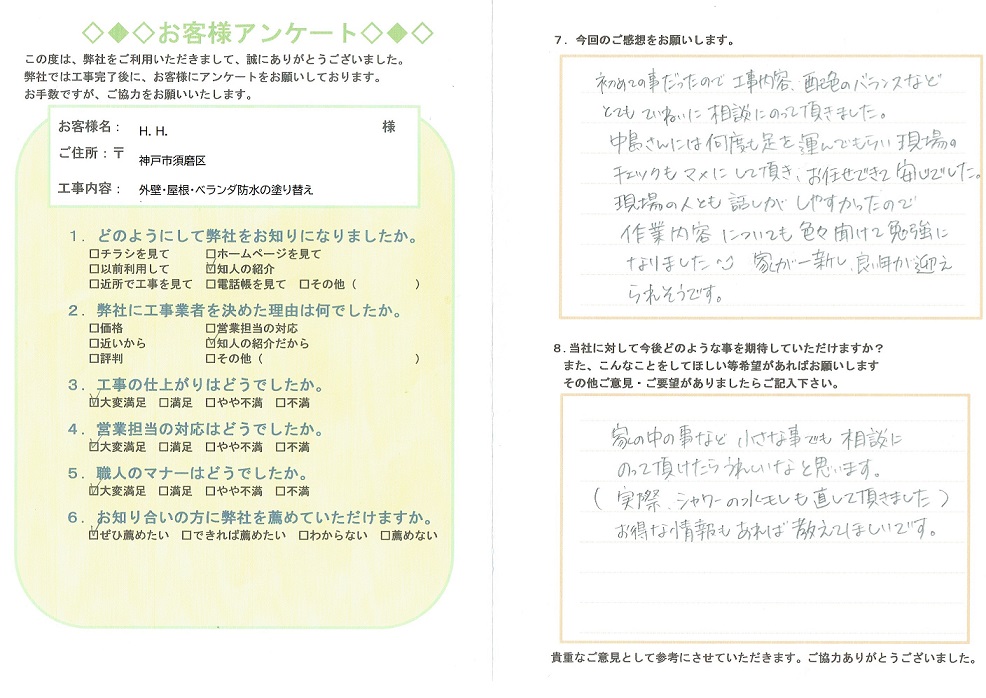 ◇◆◇お客様アンケート◇◆◇
この度は、弊社をご利用いただきまして、誠にありがとうございました。
弊社では工事完了後に、お客様にアンケートをお願いしております。
お手数ですが、ご協力をお願いいたします。
お客様名： H. H. 様
ご住所：〒 神戸市須磨区
工事内容： 外壁・屋根・ベランダ防水の塗り替え
１．どのようにして弊社をお知りになりましたか。
□チラシを見て □ホームページを見て
□以前利用して ☑知人の紹介
□近所で工事を見て □電話帳を見て □その他（ ）
２．弊社に工事業者を決めた理由は何でしたか。
□価格 □営業担当の対応
□近いから ☑知人の紹介だから
□評判 □その他（ ）
３．工事の仕上がりはどうでしたか。
☑大変満足 □満足 □やや不満 □不満
４．営業担当の対応はどうでしたか。
☑大変満足 □満足 □やや不満 □不満
５．職人のマナーはどうでしたか。
☑大変満足 □満足 □やや不満 □不満
６．お知り合いの方に弊社を薦めていただけますか。
☑ぜひ薦めたい □できれば薦めたい □わからない □薦めない
７．今回のご感想をお願いします。
初めての事だったので 工事内容、配色のバランスなど
とても ていねいに 相談にのって頂きました。
中島さんには何度も足を運んでもらい 現場の
チェックも マメに して頂き、お任せできて 安心でした。
現場の人とも 話しが しやすかったので
作業内容 についても 色々聞けて 勉強に
なりました 家が一新し、良い年が迎え
られそうです。
８．当社に対して今後どのような事を期待していただけますか？
また、こんなことをしてほしい等希望があればお願いします
その他ご意見・ご要望がありましたらご記入下さい。
家の中の事など 小さな事でも 相談に
のって頂けたら うれしいなと 思います。
（ 実際、シャワーの水モレも 直して頂きました ）
お得な情報も あれば 教えてほしいです。
貴重なご意見として参考にさせていただきます。ご協力ありがとうございました。